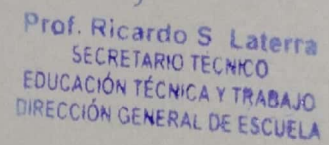 Prof. Ricardo S Laterra
SECRETARIO TÉCNICO
EDUCACIÓN TÉCNICA Y TRABAJO
DIRECCIÓN GENERAL DE ESCUELA